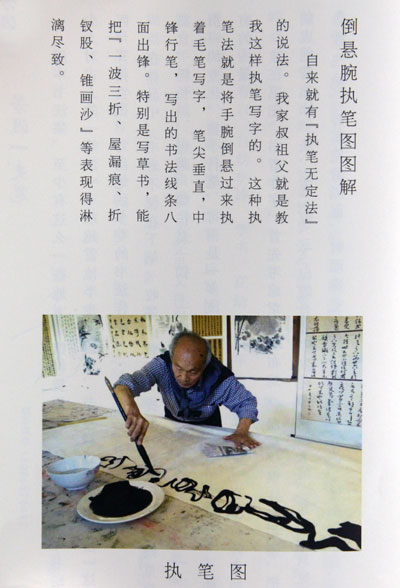 倒悬腕执笔图图解
自来就有『执笔无定法』
的说法。我家叔祖父就是教
我这样执笔写字的。这种执
笔法就是将手腕倒悬过来执
着毛笔写字，笔尖垂直，中
锋行笔，写出的书法线条八
面出锋。特别是写草书，能
把『一波三折、屋漏痕、折
钗股、锥画沙』等表现得淋
漓尽致。
执笔图